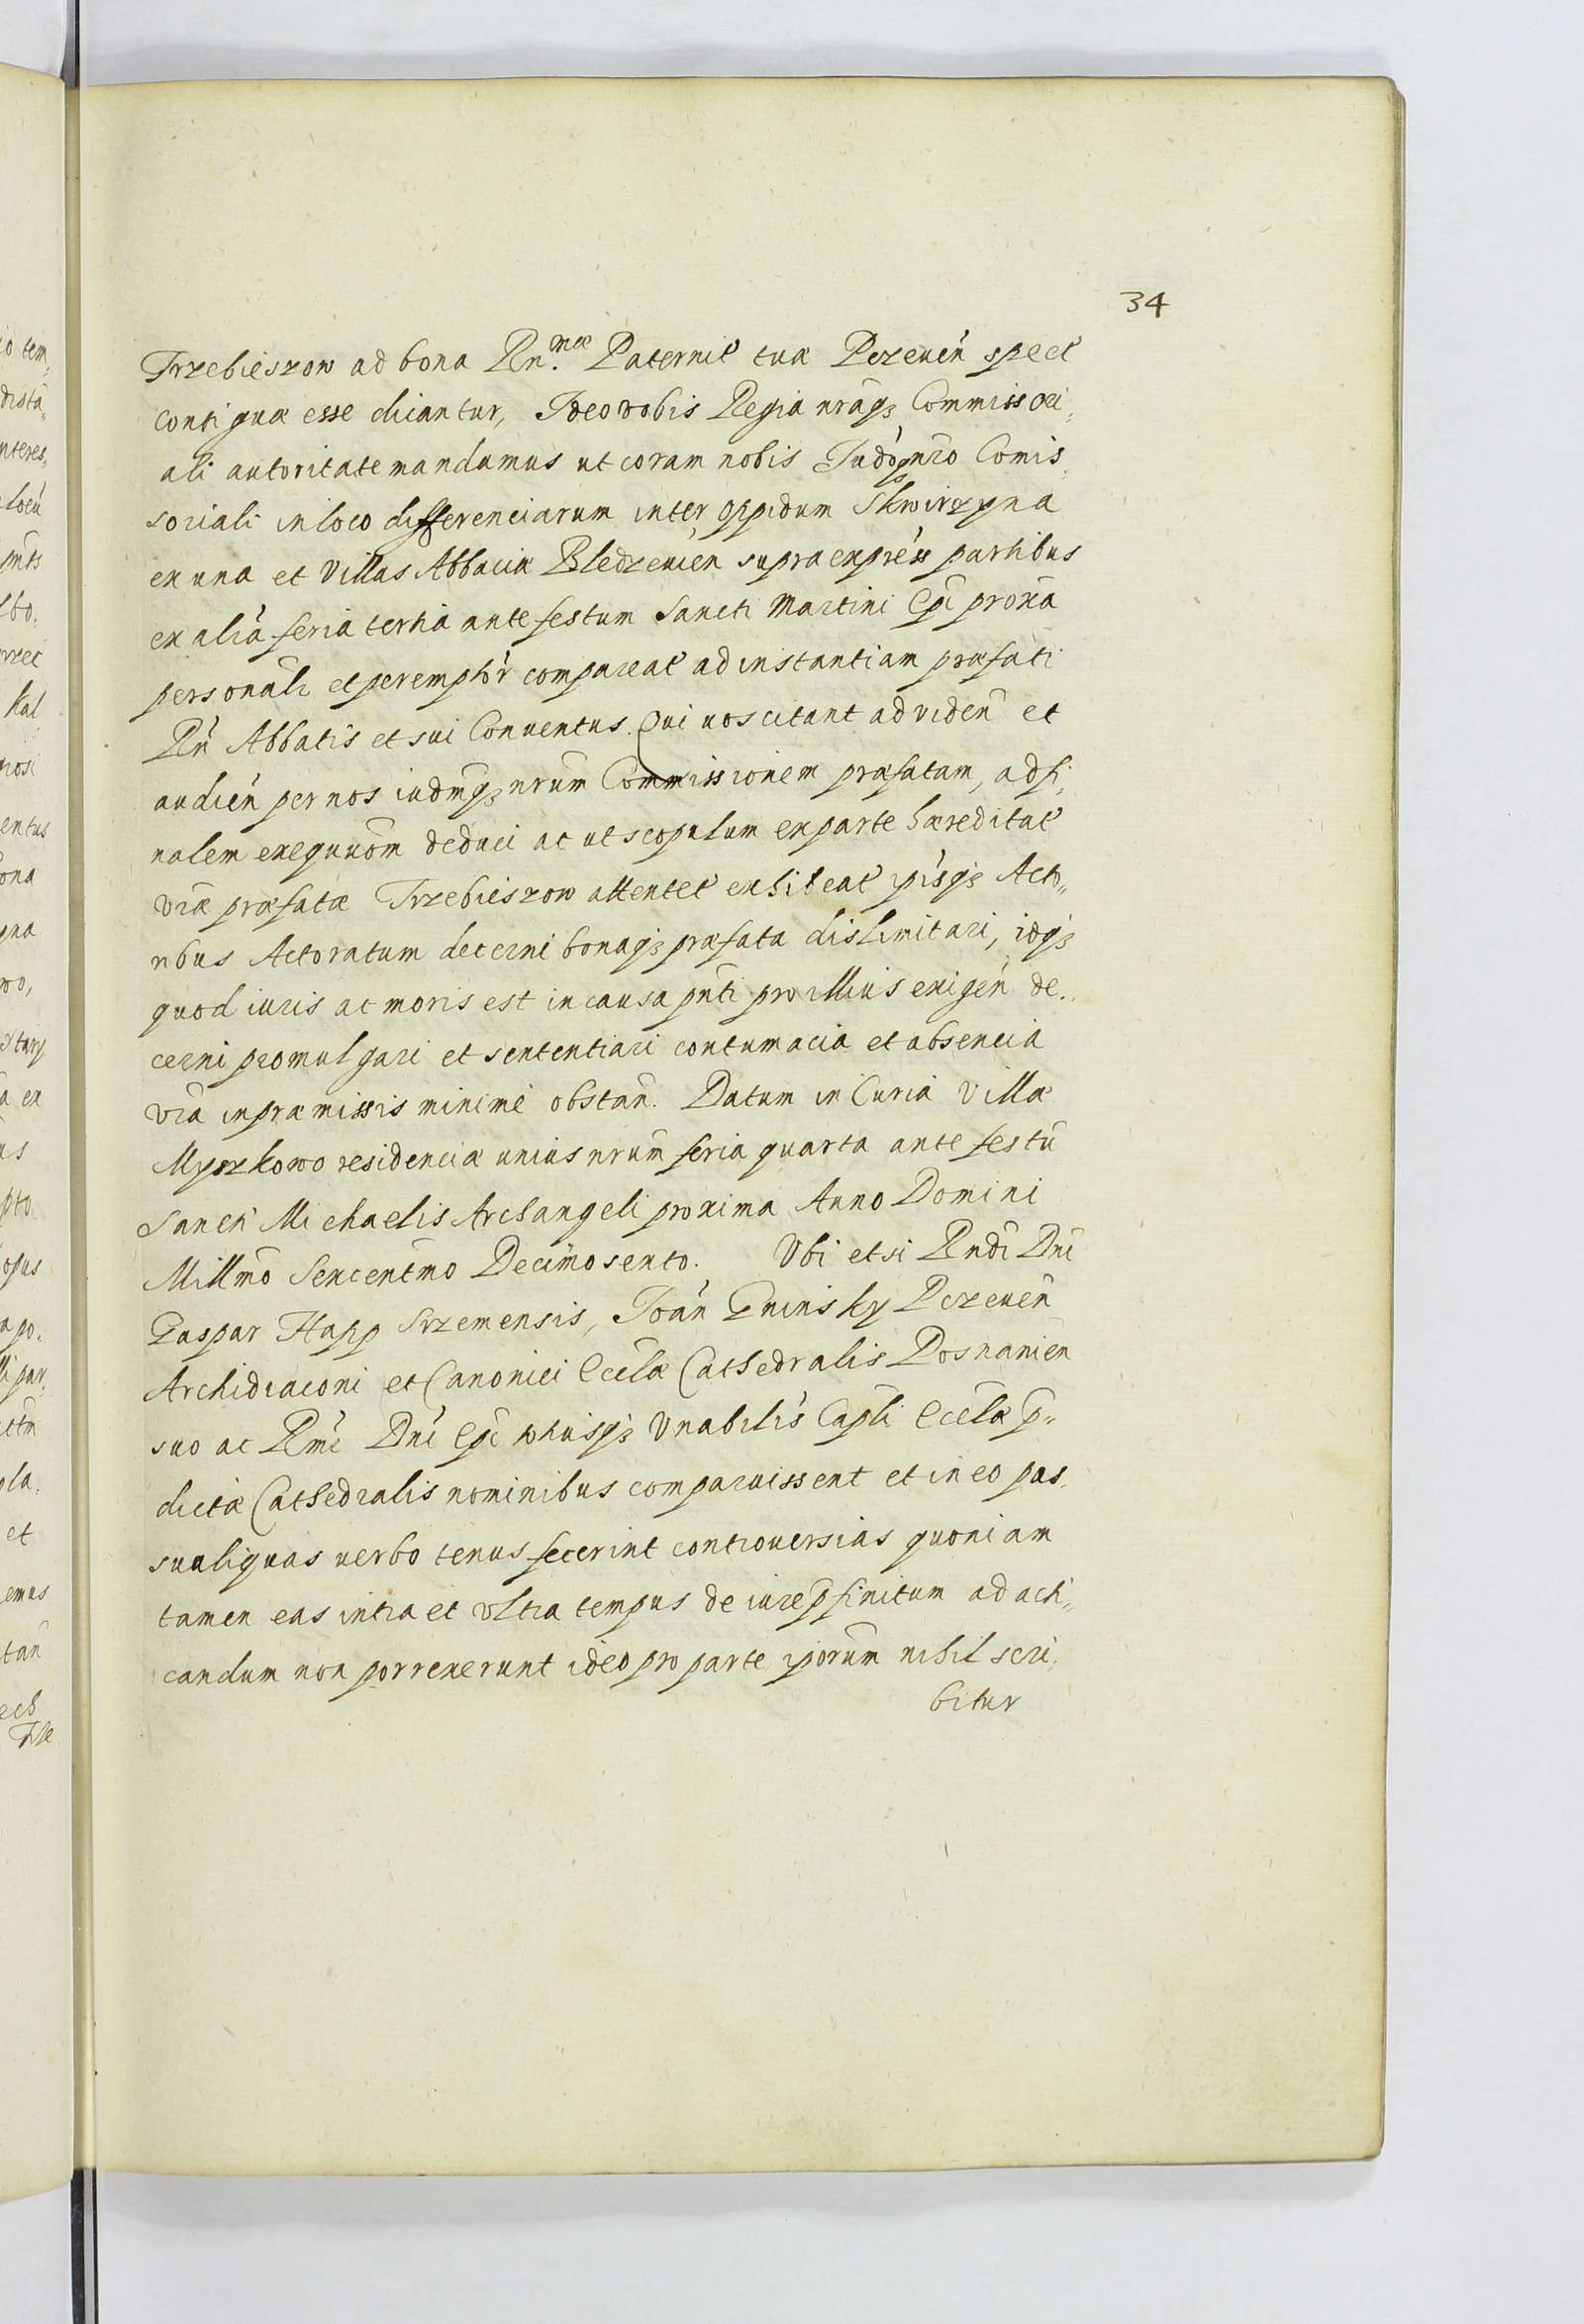 34
Trzebieszow ad bona Rn.mæ Paternit tuæ Pczeuen̄ spect
contiguæ esse dicantur, Ideo vobis Regia nrāqȝ Commissori,
ali autoritate mandamus ut coram nobis Iudo nr̄o Comis,
soriali in loco differenciarum inter oppidum Skwirzyna
ex una et Villas Abbaciæ Bledzeuien supra expræss partibus
ex aliā feria tertia ante festum Sancti Martini Epī proxā
personalr et peremptōr compareat ad instantiam præfati
Rn̄ Abbatis et sui Conuentus. Qui uos citant ad viden̄ et
audien̄ per nos iudmqȝ nrūm Commissionem præfatam, ad fi,
nalem exequuōm deduci ac ut scopulum ex parte hæreditat
vr̄æ præfatæ Trzebieszow attentet exhibeat ip̄isqȝ Acto„
ribus Actoratum decerni bonaqȝ præfata dislimitari, idqȝ
quod iuris ac moris est in causa pn̄ti pro illius exigen̄ de„
cerni promulgari et sententiari contumacia et absencia
vr̄a in præmissis minimè obstan̄. Datum in Curia Villæ
Myszkowo residenciæ unius nrūm feria quarta ante festū
Sancti Michaelis Archangeli proxima Anno Domini
Millmō Sexcentmō Decimo sexto. Vbi etsi Rndī Dnī
Gaspar Happ Srzemensis, Ioan̄ Gninsky Pczeuen̄
Archidiaconi et Canonici Eccl̄æ Cathedralis Posnanien
suo ac Rmī Dnī Epī totiusqȝ Vnabilis Capl̄i Eccl̄æ p̄„
dictæ Cathedralis nominibus comparuissent et in eo pas,
su aliquas uerbo tenus fecerint controuersias quoniam
tamen eas intra et vltra tempus de iure p̄finitum ad acti„
candum non porrexerunt ideo pro parte ip̄orūm nihil scri,
bitur